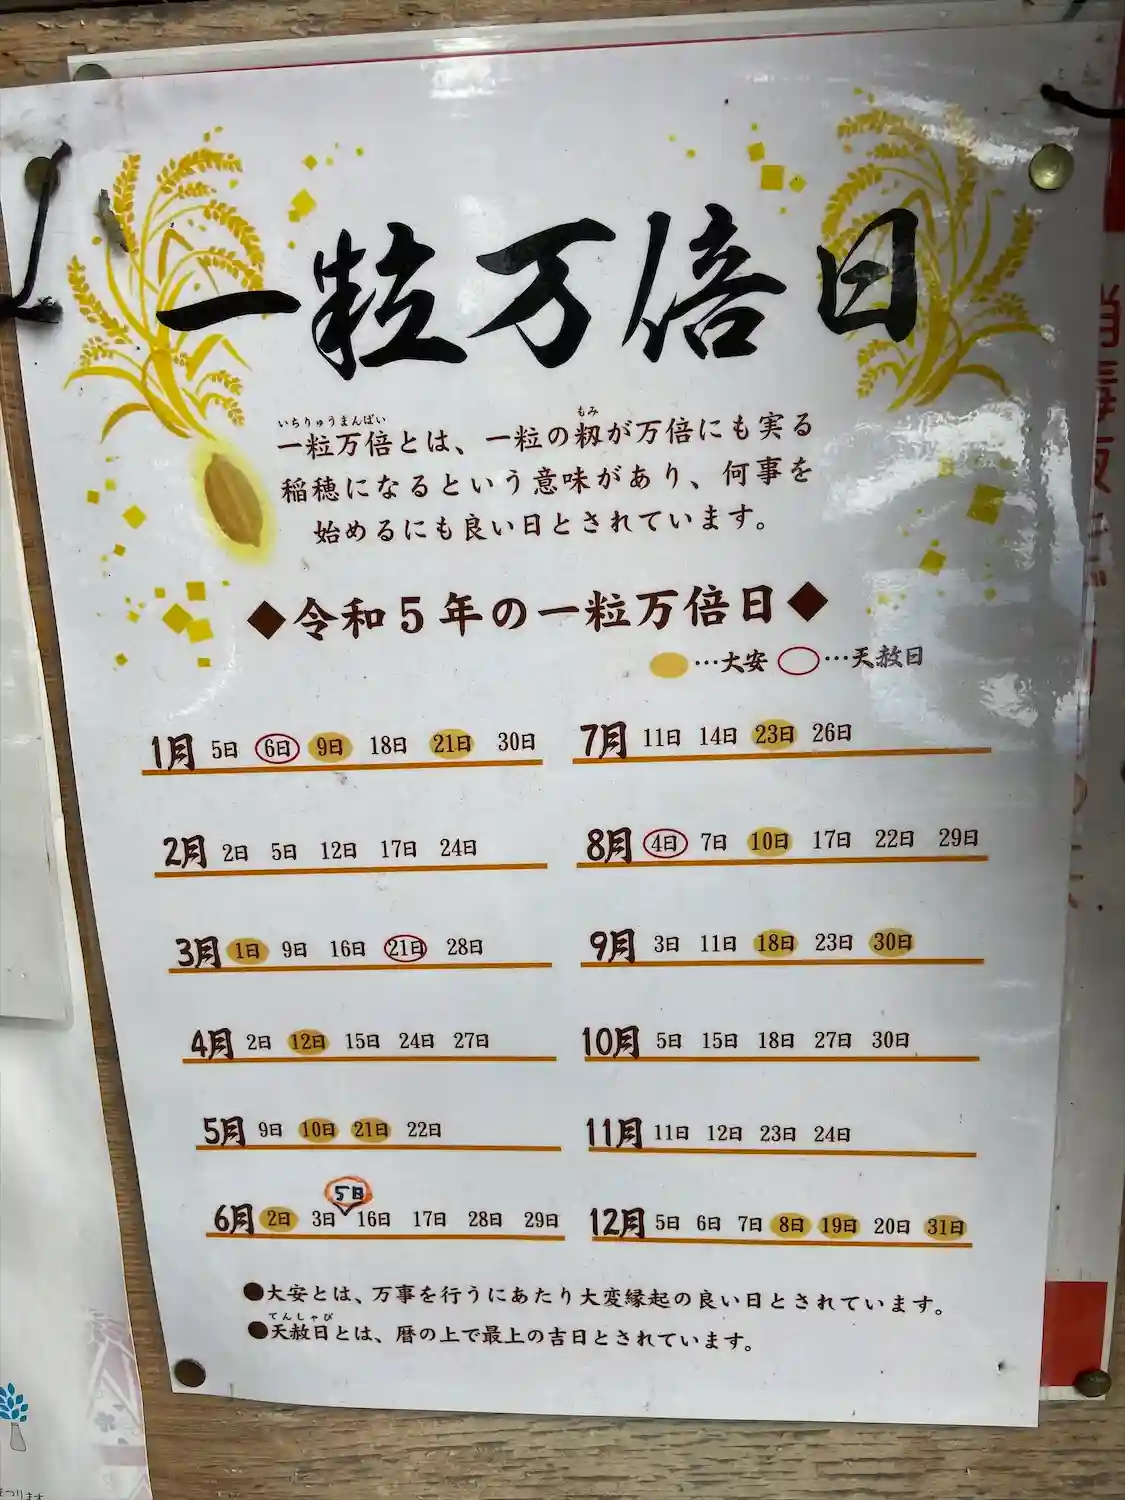 一粒万倍日
いちりゅうまんばい
もみ
一粒万倍とは、一粒の籾が万倍にも実る
稲穂になるという意味があり、何事を
始めるにも良い日とされています。
◆令和5年の一粒万倍日◆
…大安 …天赦日
1月 5日 6日 9日 18日 21日 30日
2月 2日 5日 12日 17日 24日
3月 1日 9日 16日 21日 28日
4月 2日 12日 15日 24日 27日
5月 9日 10日 21日 22日
5日
6月 2日 3日 16日 17日 28日 29日
7月 11日 14日 23日 26日
8月 4日 7日 10日 17日 22日 29日
9月 3日 11日 18日 23日 30日
10月 5日 15日 18日 27日 30日
11月 11日 12日 23日 24日
12月 5日 6日 7日 8日 19日 20日 31日
●大安とは、万事を行うにあたり大変縁起の良い日とされています。
てんしゃび
●天赦日とは、暦の上で最上の吉日とされています。